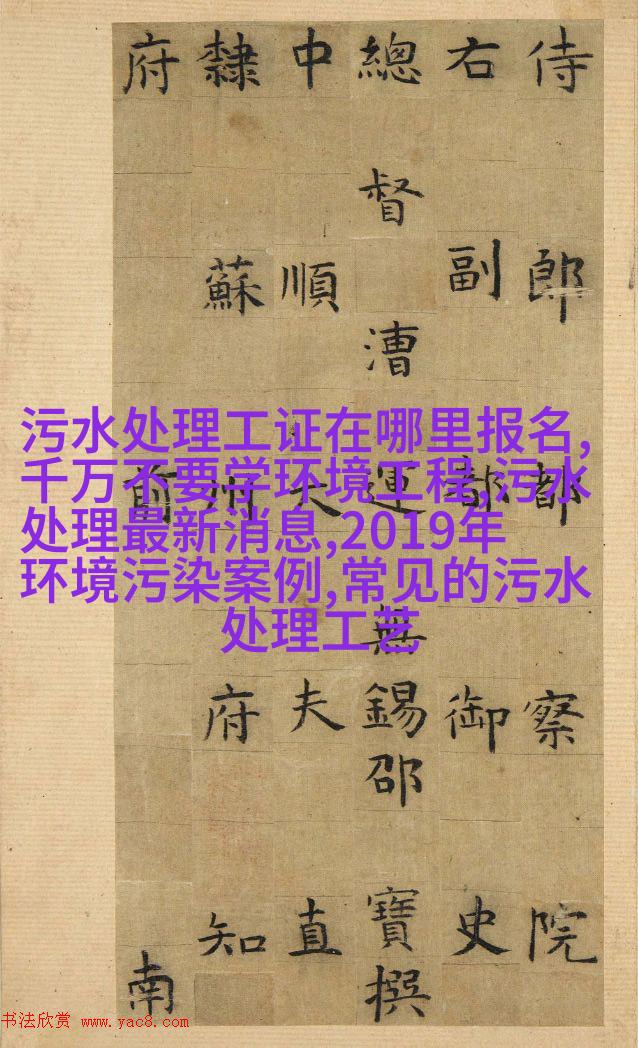 侍郎都察院
右副都御史
總督漕運無錫邵寶撰
中順大夫直
隸蘇州府知
府前南
污水处理工证在哪里报名,
千万不要学环境工程,污水
处理最新消息,2019年
环境污染案例,常见的污水
处理工艺
书法欣赏 www.yac8.com